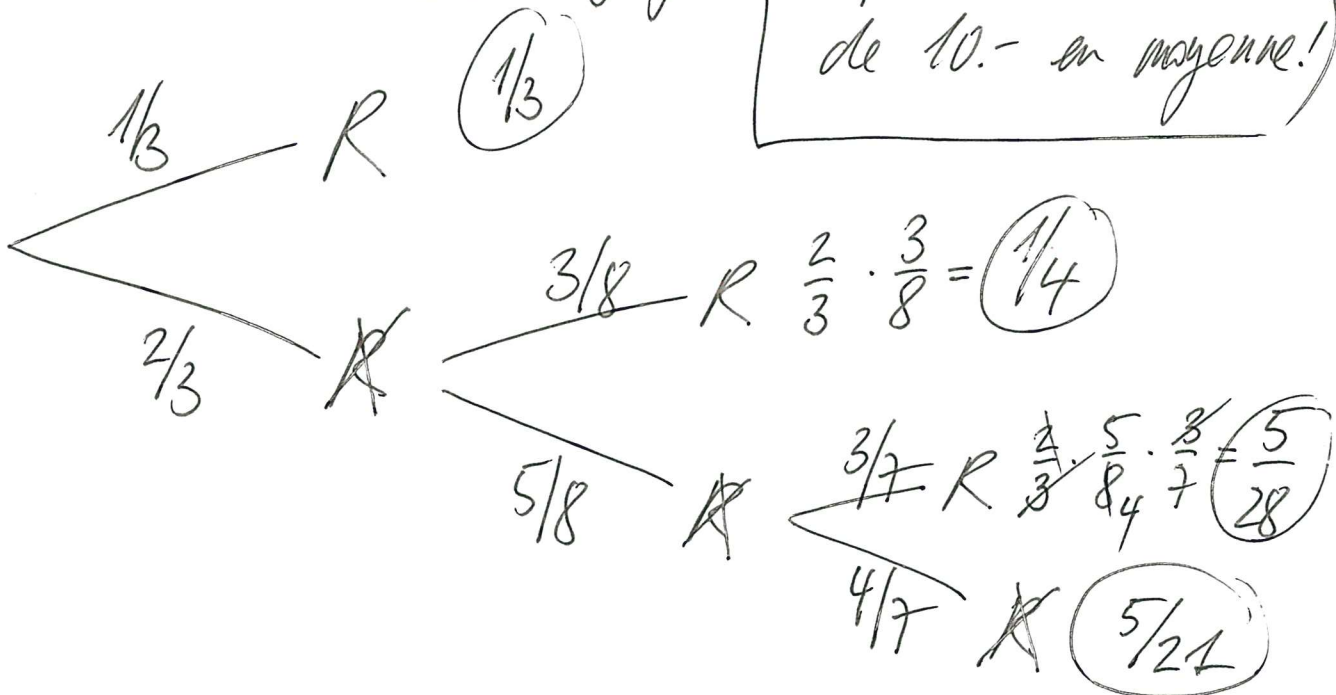 de 10.- en moyenne!
1/3 R 1/3
3/8 R 2/3 · 3/8 = 1/4
2/3 R̸
3/7 R 2/3 · 5/8 4 · 3/7 = 5/28
5/8 R̸
4/7 R̸ 5/21